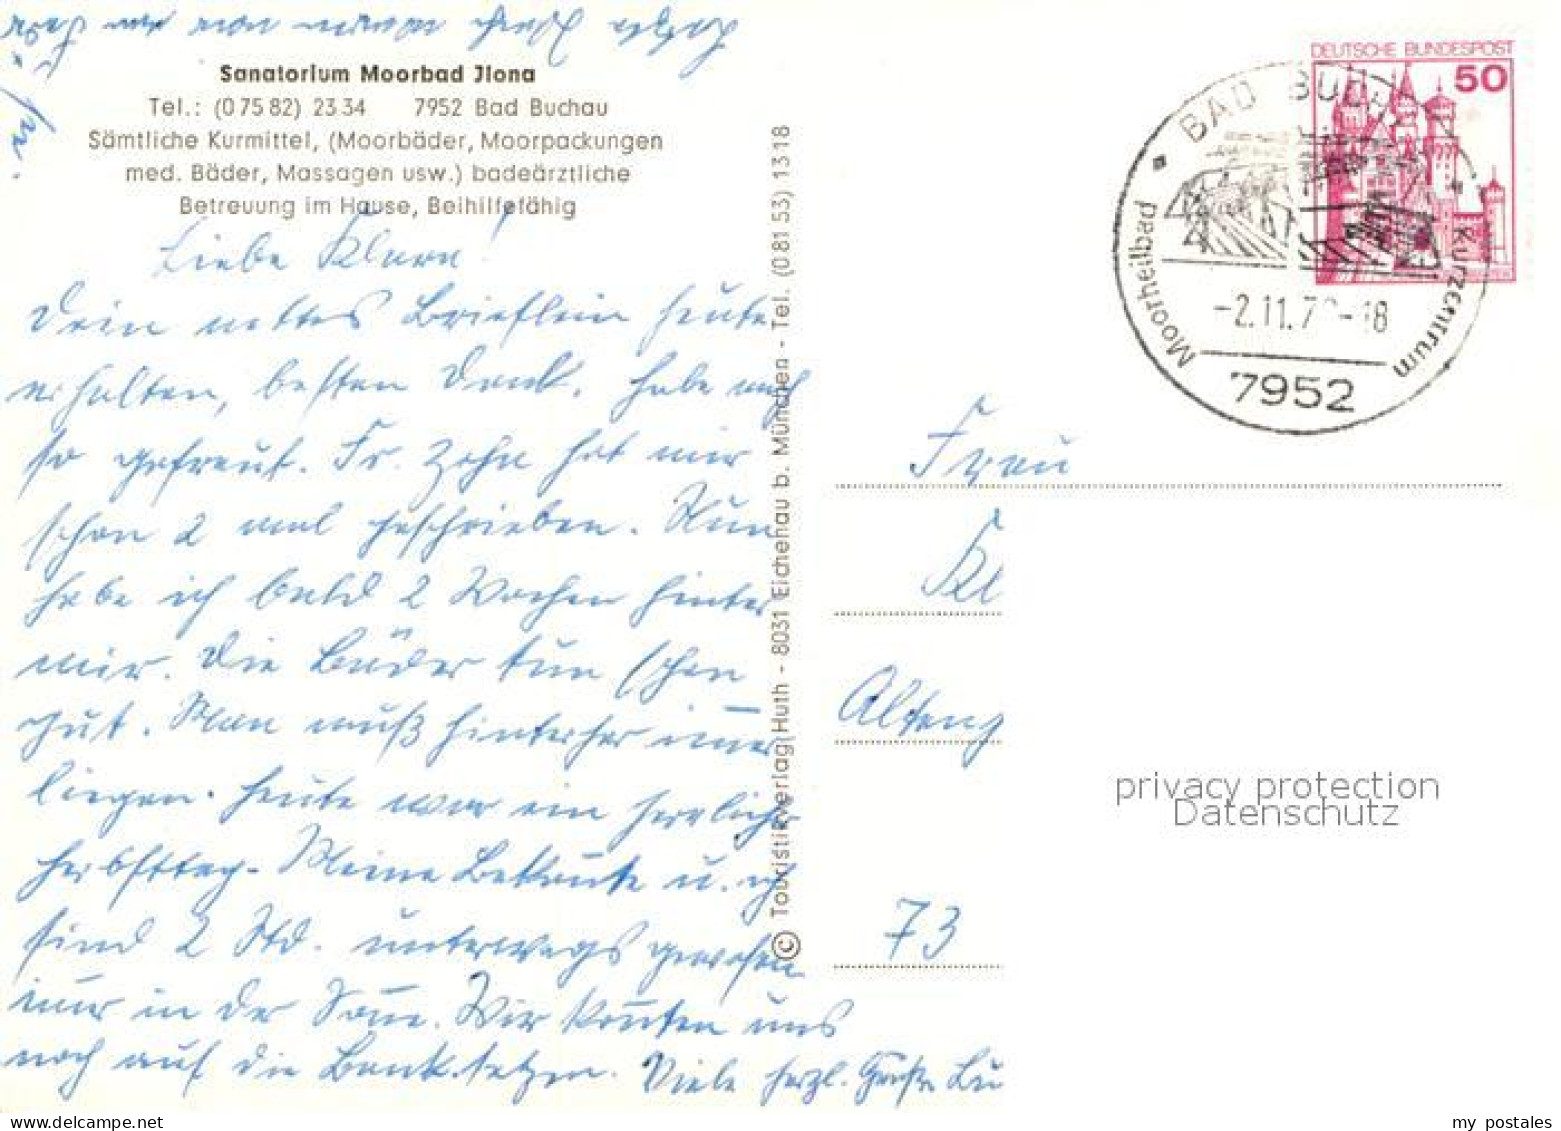 Sanatorium Moorbad Jlona
Tel.: (0 75 82) 23 34 7952 Bad Buchau
Sämtliche Kurmittel, (Moorbäder, Moorpackungen
med. Bäder, Massagen usw.) badeärztliche
Betreuung im Hause, Beihilfefähig
Liebe Klara!
Dein nettes Brieflein heute
erhalten, besten Dank. Habe mich
so gefreut. Fr. Zehn hat mir
schon 2 mal geschrieben. Nun
habe ich bald 2 Wochen hinter
mir. Die Bäder tun schon
gut. Man muß hinterher im̅er
liegen. Heute war ein herrlicher
Herbsttag. Meine Bekan̅te u. ich
sind 2 Std. unterwegs gewesen
nur in der Son̅e. Wir kon̅ten uns
noch auf die Bank setzen. Viele herzl. Grüße
© Touristikverlag Huth - 8031 Eichenau b. München - Tel. (0 81 53) 13 18
DEUTSCHE BUNDESPOST
50
BAD BUCHAU
Moorheilbad
Kurzentrum
-2.11.7 -18
7952
Frau
Kl
Alteng
73
privacy protection
Datenschutz
my postales